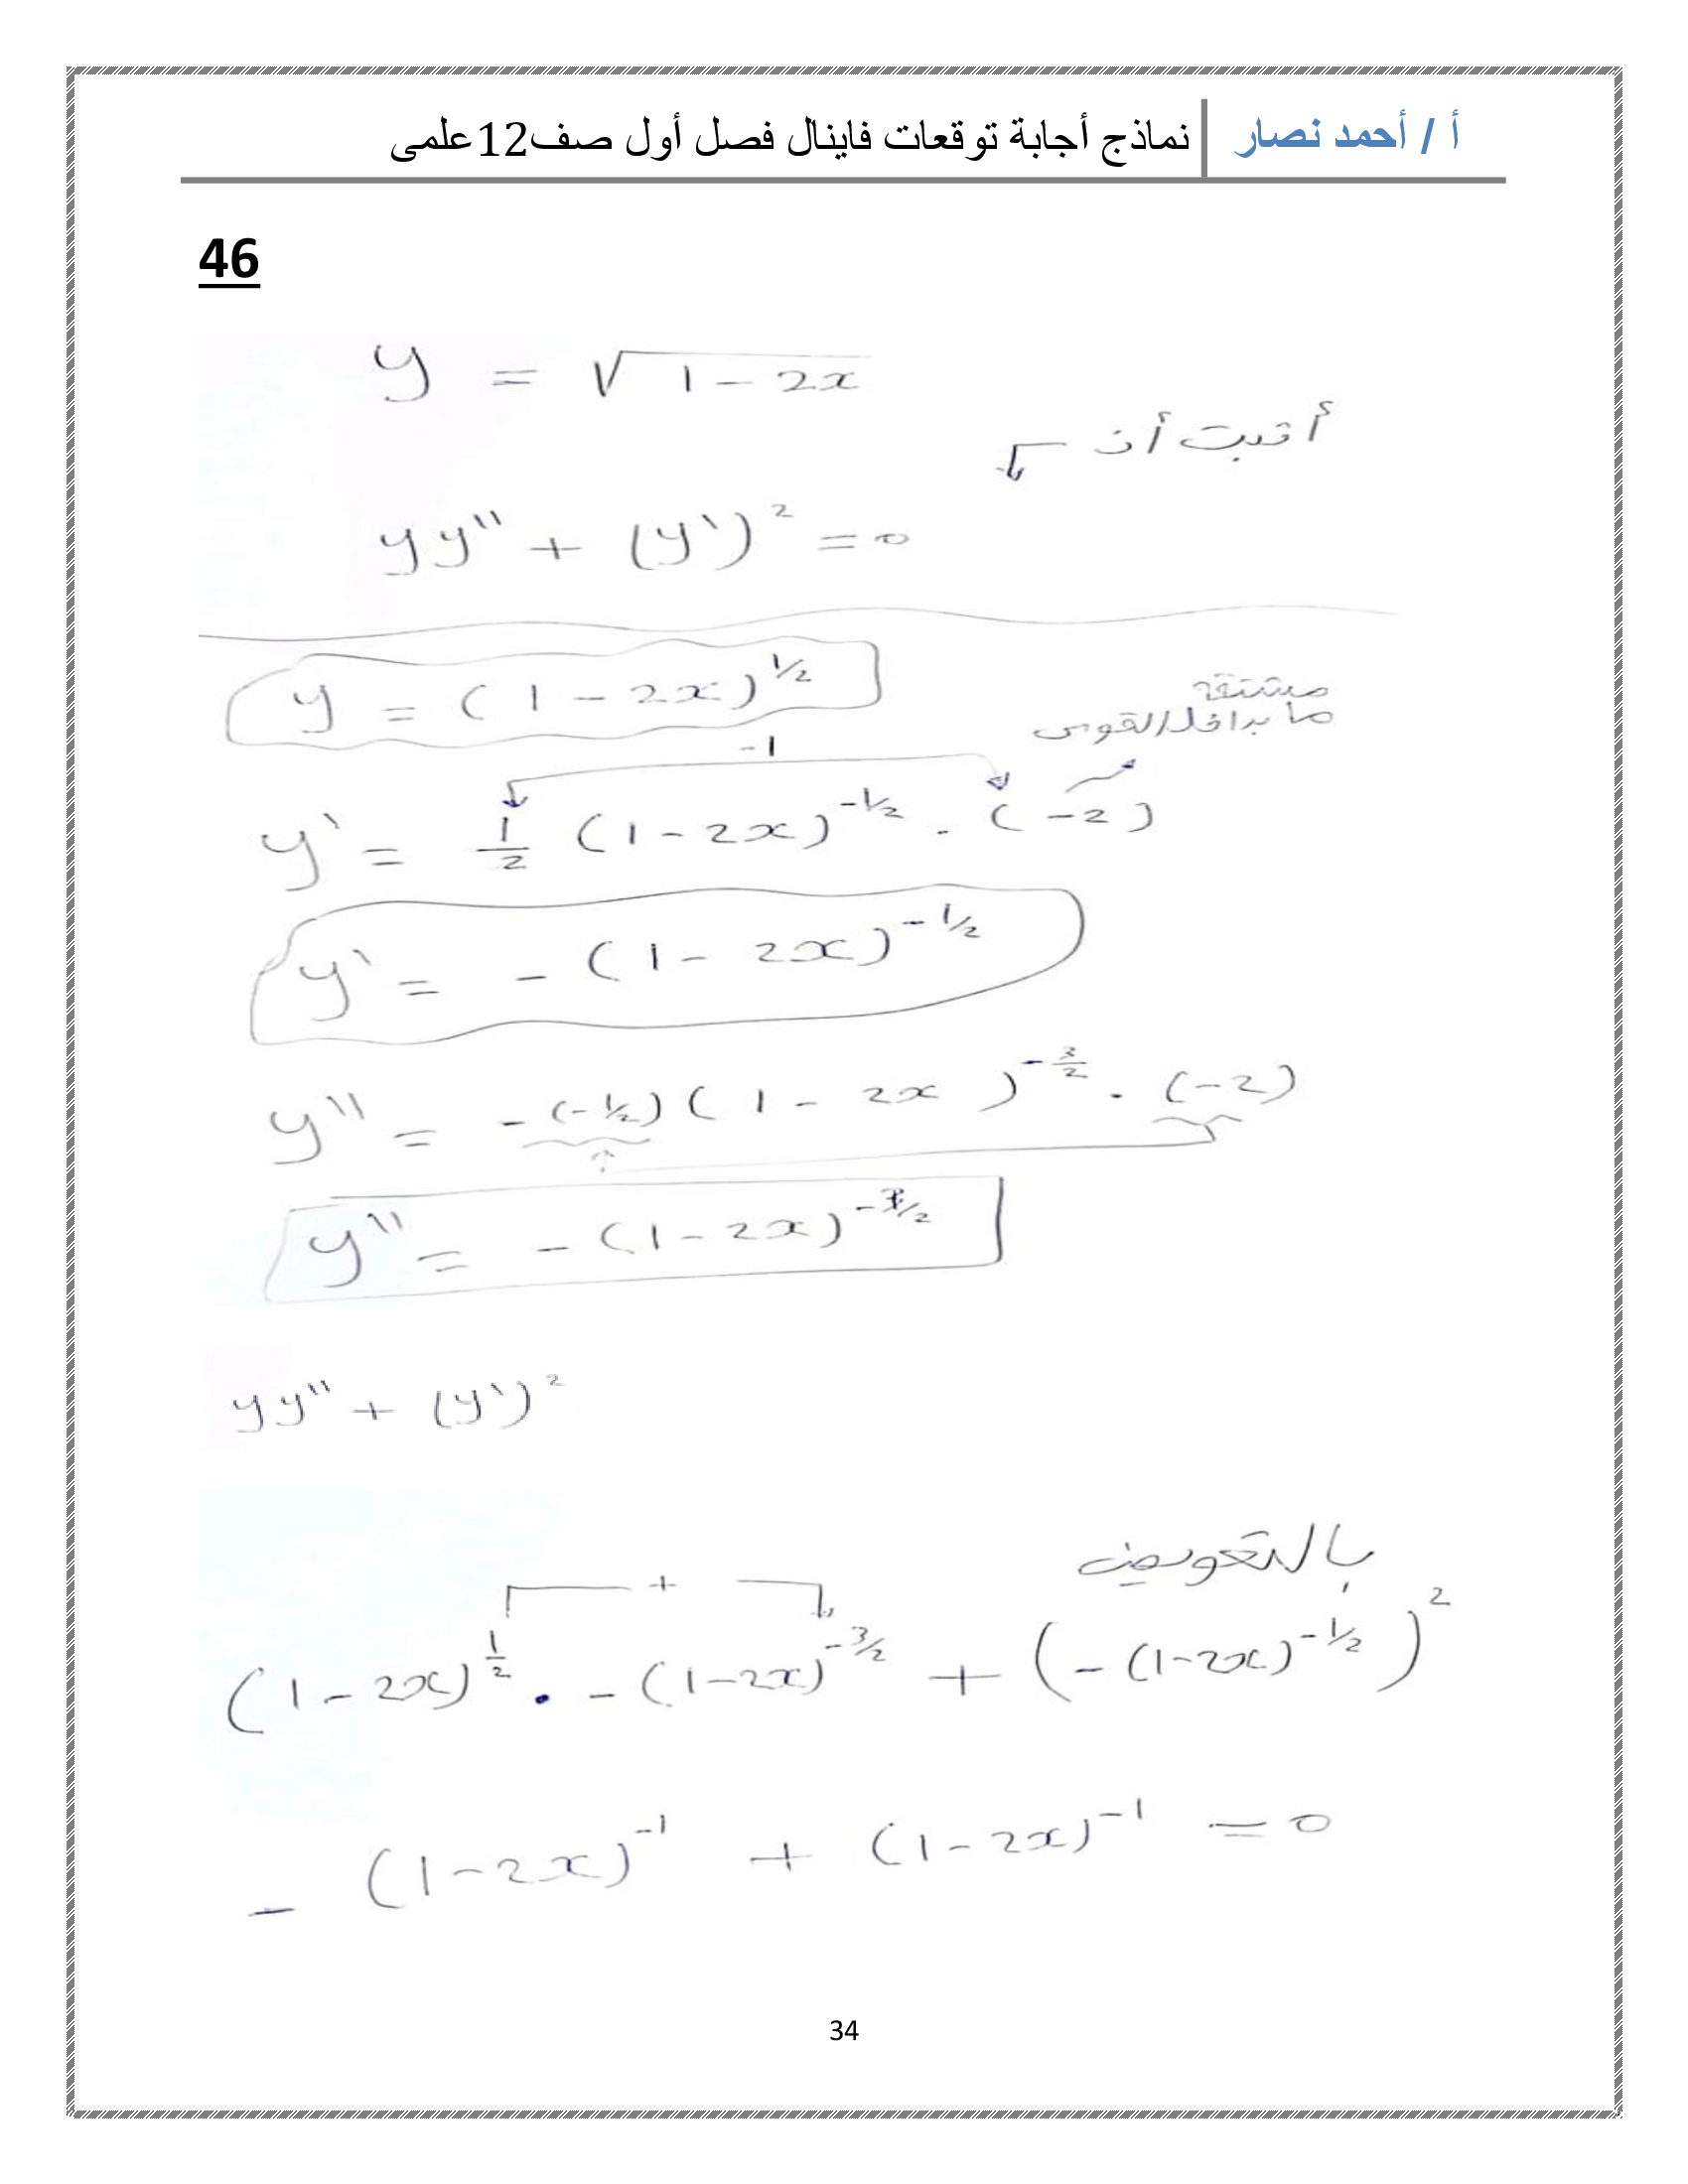 أ / أحمد نصار نماذج أجابة توقعات فاينال فصل أول صف12علمى
46
y = √1-2x
أثبت أن
yy'' + (y')² = 0
y = (1-2x)^1/2
مشتقة
ما بداخل القوس
-1
y' = 1/2 (1-2x)^-1/2 . (-2)
y' = -(1-2x)^-1/2
y'' = -(-1/2)(1-2x)^-3/2 . (-2)
y'' = -(1-2x)^-3/2
yy'' + (y')²
بالتعويض
+
(1-2x)^1/2 . -(1-2x)^-3/2 + (-(1-2x)^-1/2)²
-(1-2x)^-1 + (1-2x)^-1 = 0
34